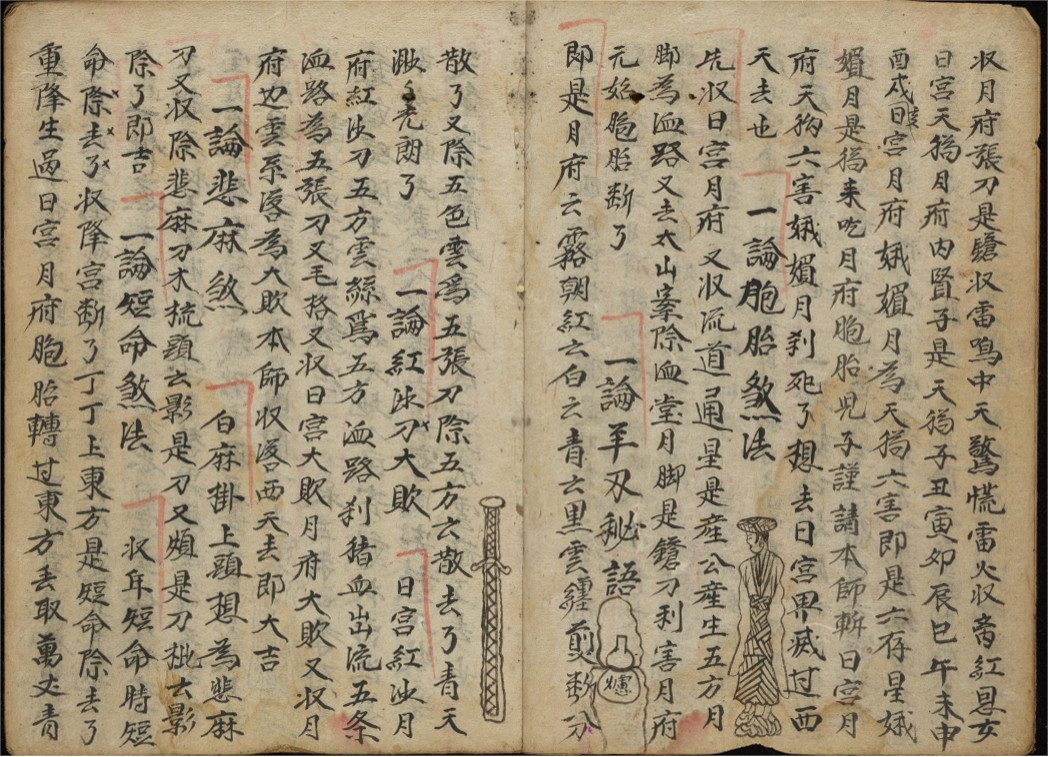 収月府張刀是鎗収雷鳴中天驚慌雷火収斎紅恩女
日宮天狗月府内賢子是天狗子丑寅夘辰巳午未申
酉戍日宮月府娥媚月為天狗六害即是六存星娥
媚月是狗来吃月府胞胎児子謹請本師斬日宮月
府天狗六害娥媚月刹死了想去日宮界威过西
天去也 一論胞胎煞法
先収日宮月府又収流道通星是産公産生五方月
脚為血路又去太山寨除血堂月脚是鎗刀利害月府
元始胞胎断了 一論羊刃秘語
即是月府云霧朝紅云白云青云黒雲纏剪断分
爐
散了又除五色雲為五張刀除五方云散去了青天
㴠毛光朗了 一論紅沙刀大敗 日宮紅沙月
府紅沙刀五方雲絲為五方血路刹猪血出流五条
血路為五張刀又毛格又収日宮大敗月府大敗又収月
府边雲系落為大敗本師収落西天去即大吉
一論悲麻煞 白麻掛上頭想為悲麻
刀又収除悲麻刀木梳頭云影是刀又頗是刀批云影
除了即吉 一論短命煞法 収年短命時短
命除去了収降宮断了丁丁上東方是短命除去了
重降生過日宮月府胞胎轉过東方丢取萬丈青